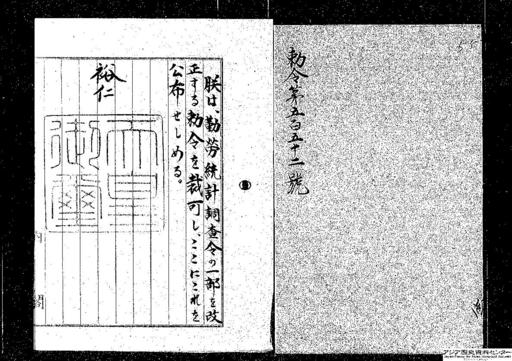 勅令第五百五十二號
朕は、勤勞統計調査令の一部を改
正する勅令を裁可し、ここにこれを
公布せしめる。
裕仁
天皇
御璽
内閣
アジア歴史資料センター